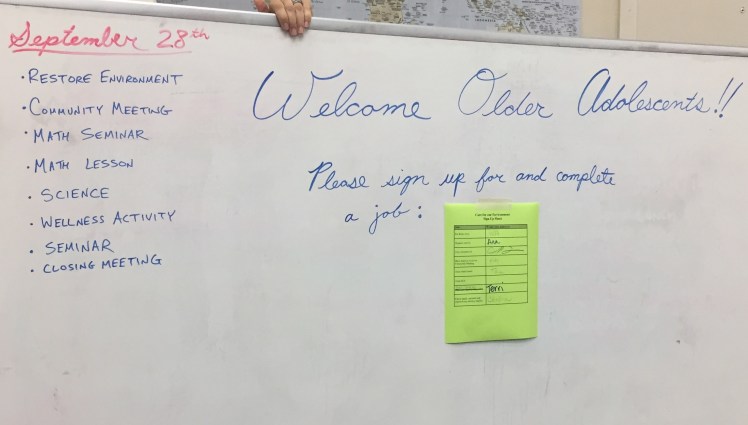 September 28th
• RESTORE ENVIRONMENT
• COMMUNITY MEETING
• MATH SEMINAR
• MATH LESSON
• SCIENCE
• WELLNESS ACTIVITY
• SEMINAR
• CLOSING MEETING
Welcome Older Adolescents!!
Please sign up for and complete
a job:
Ana
Terri